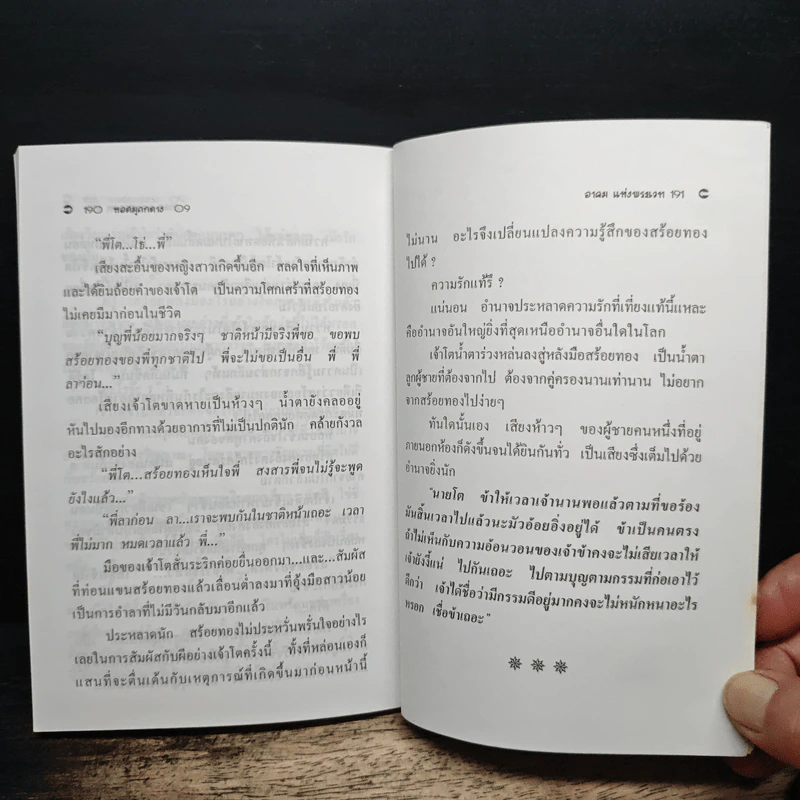 ๑๙๐ ทอดมุกกลาง 09
"พี่โต...โธ่...พี่"
เสียงสะอื้นของหญิงสาวเกิดขึ้นอีก สลดใจที่เห็นภาพ
และได้ยินถ้อยคำของเจ้าโต เป็นความโศกเศร้าที่สร้อยทอง
ไม่เคยมีมาก่อนในชีวิต
"บุญพี่น้อยมากจริงๆ ชาติหน้ามีจริงพี่ขอ ขอพบ
สร้อยทองของพี่ทุกชาติไป พี่จะไม่ขอเป็นอื่น พี่ พี่
ลาก่อน..."
เสียงเจ้าโตขาดหายเป็นห้วงๆ น้ำตายังคลออยู่
หันไปมองอีกทางด้วยอาการที่ไม่เป็นปกตินัก คล้ายกังวล
อะไรสักอย่าง
"พี่โต...สร้อยทองเห็นใจพี่ สงสารพี่จนไม่รู้จะพูด
ยังไงแล้ว..."
"พี่ลาก่อน ลา...เราจะพบกันในชาติหน้าเถอะ เวลา
พี่ไม่มาก หมดเวลาแล้ว พี่..."
มือของเจ้าโตสั่นระริกค่อยยื่นออกมา...และ...สัมผัส
ที่ท่อนแขนสร้อยทองแล้วเลื่อนต่ำลงมาที่อุ้งมือสาวน้อย
เป็นการอำลาที่ไม่มีวันกลับมาอีกแล้ว
ประหลาดนัก สร้อยทองไม่ประหวั่นพรั่นใจอย่างไร
เลยในการสัมผัสกับผีอย่างเจ้าโตครั้งนี้ ทั้งที่หล่อนเองก็
แสนที่จะตื่นเต้นกับเหตุการณ์ที่เกิดขึ้นมาก่อนหน้านี้
อาคม แห่งพระเวท ๑๙๑
ไม่นาน อะไรจึงเปลี่ยนแปลงความรู้สึกของสร้อยทอง
ไปได้ ?
ความรักแท้รึ ?
แน่นอน อำนาจประหลาดความรักที่เที่ยงแท้นี้แหละ
คืออำนาจอันใหญ่ยิ่งที่สุดเหนืออำนาจอื่นใดในโลก
เจ้าโตน้ำตาร่วงหล่นลงสู่หลังมือสร้อยทอง เป็นน้ำตา
ลูกผู้ชายที่ต้องจากไป ต้องจากคู่ครองนานเท่านาน ไม่อยาก
จากสร้อยทองไปง่ายๆ
ทันใดนั้นเอง เสียงห้าวๆ ของผู้ชายคนหนึ่งที่อยู่
ภายนอกห้องก็ดังขึ้นจนได้ยินกันทั่ว เป็นเสียงซึ่งเต็มไปด้วย
อำนาจยิ่งนัก
"นายโต ข้าให้เวลาเจ้านานพอแล้วตามที่ขอร้อง
มันสิ้นเวลาไปแล้วนะมัวอ้อยอิ่งอยู่ได้ ข้าเป็นคนตรง
ถ้าไม่เห็นกับความอ้อนวอนของเจ้าข้าคงจะไม่เสียเวลาให้
เจ้ายังงี้แน่ ไปกันเถอะ ไปตามบุญตามกรรมที่ก่อเอาไว้
ดีกว่า เจ้าได้ชื่อว่ามีกรรมดีอยู่มากคงจะไม่หนักหนาอะไร
หรอก เชื่อข้าเถอะ"